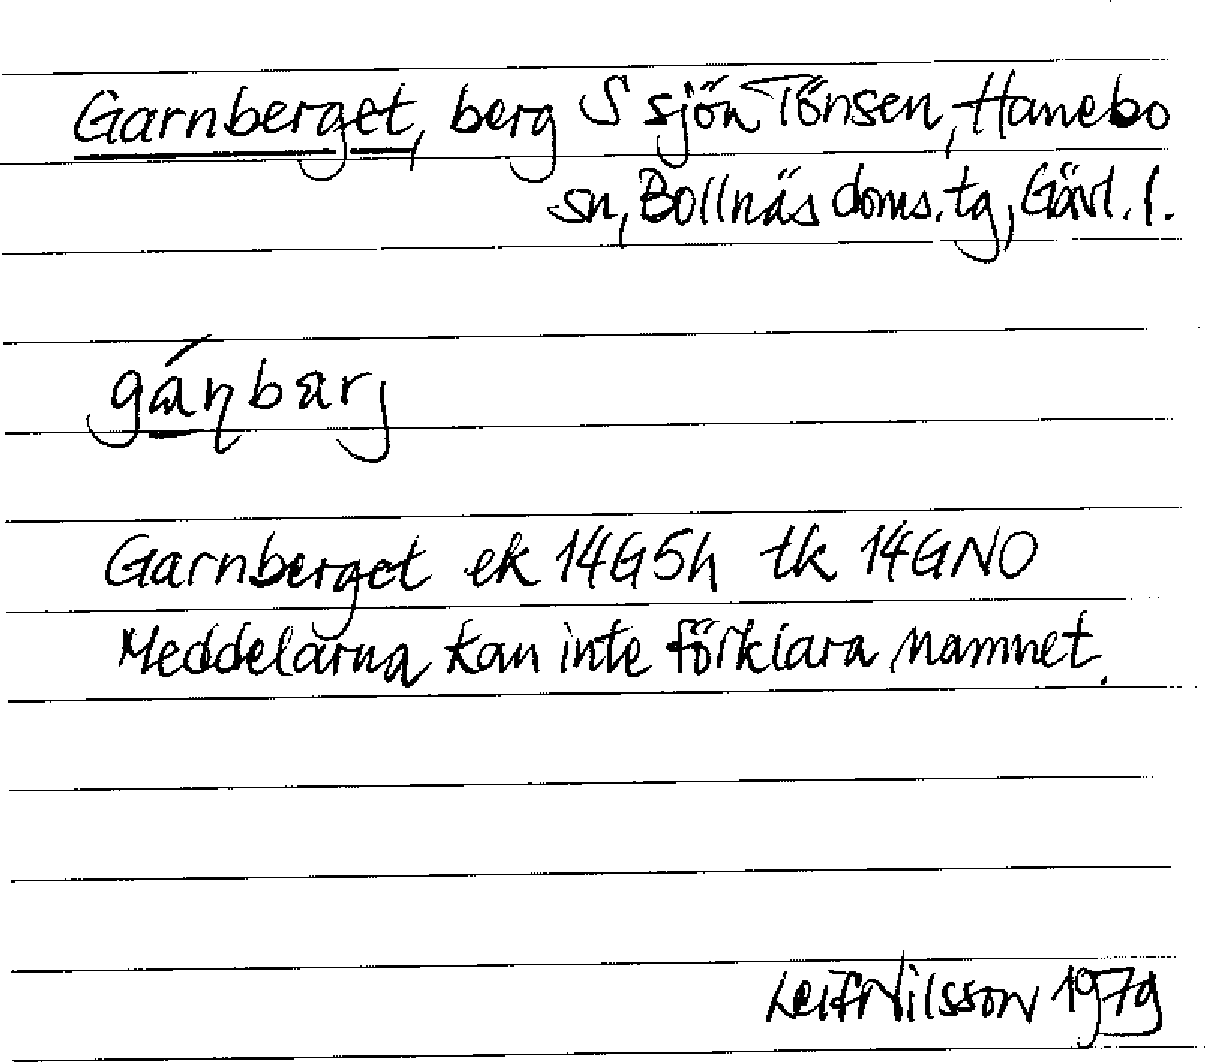 Garnberget, berg S sjön Tönsen, Hanebo
sn, Bollnäs doms. tg, Gävl. l.
gáɳbarj
Garnberget ek 14G5h tk 14GNO
Meddelarna kan inte förklara namnet.
Leif Nilsson 1979